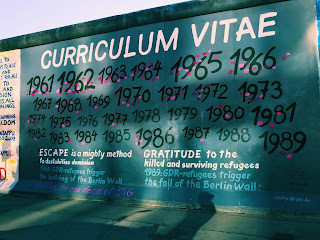 CURRICULUM VITAE
1961 1962 1963 1964 1965 1966
1967 1968 1969 1970 1971 1972 1973
1974 1975 1976 1977 1978 1979 1980 1981
1982 1983 1984 1985 1986 1987 1988 1989
ESCAPE is a mighty method
To destabilise dominion
1961: GDR-refugees trigger
the building of the Berlin Wall
GRATITUDE to the
killed and surviving refugees
1989: GDR-refugees trigger
the fall of the Berlin Wall!